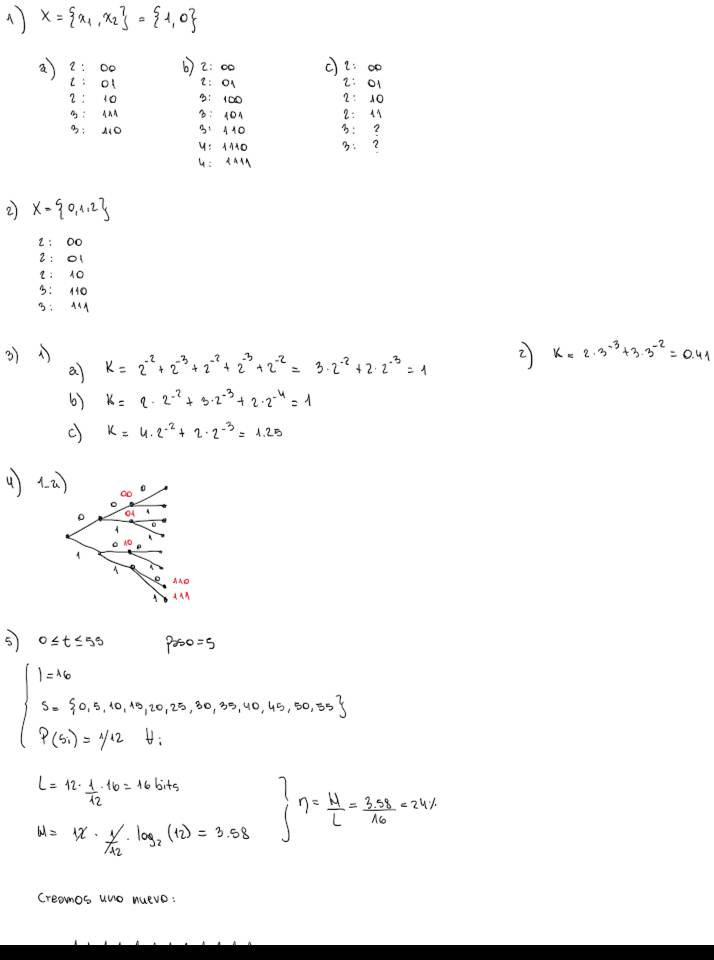 1) X = {x₁, x₂} = {1, 0}
a) 2: 00
2: 01
2: 10
3: 111
3: 110
b) 2: 00
2: 01
3: 100
3: 101
3: 110
4: 1110
4: 1111
c) 2: 00
2: 01
2: 10
2: 11
3: ?
3: ?
2) X = {0,1,2}
2: 00
2: 01
2: 10
3: 110
3: 111
3) 1)
a) K = 2⁻² + 2⁻³ + 2⁻² + 2⁻³ + 2⁻² = 3·2⁻² + 2·2⁻³ = 1
b) K = 2·2⁻² + 3·2⁻³ + 2·2⁻⁴ = 1
c) K = 4·2⁻² + 2·2⁻³ = 1.25
2) K = 2·3⁻³ + 3·3⁻² = 0.41
4) 1-a)
0 1
0 1 0 1
00 01 10
0 1 0 1 0 1 0 1
110
111
5) 0 ≤ t ≤ 55 paso = 5
l = 16
S = {0, 5, 10, 15, 20, 25, 30, 35, 40, 45, 50, 55}
P(Si) = 1/12 ∀i
L = 12 · 1/12 · 16 = 16 bits
H = 12 · 1/12 · log₂(12) = 3.58
η = H/L = 3.58/16 = 24%
Creamos uno nuevo: